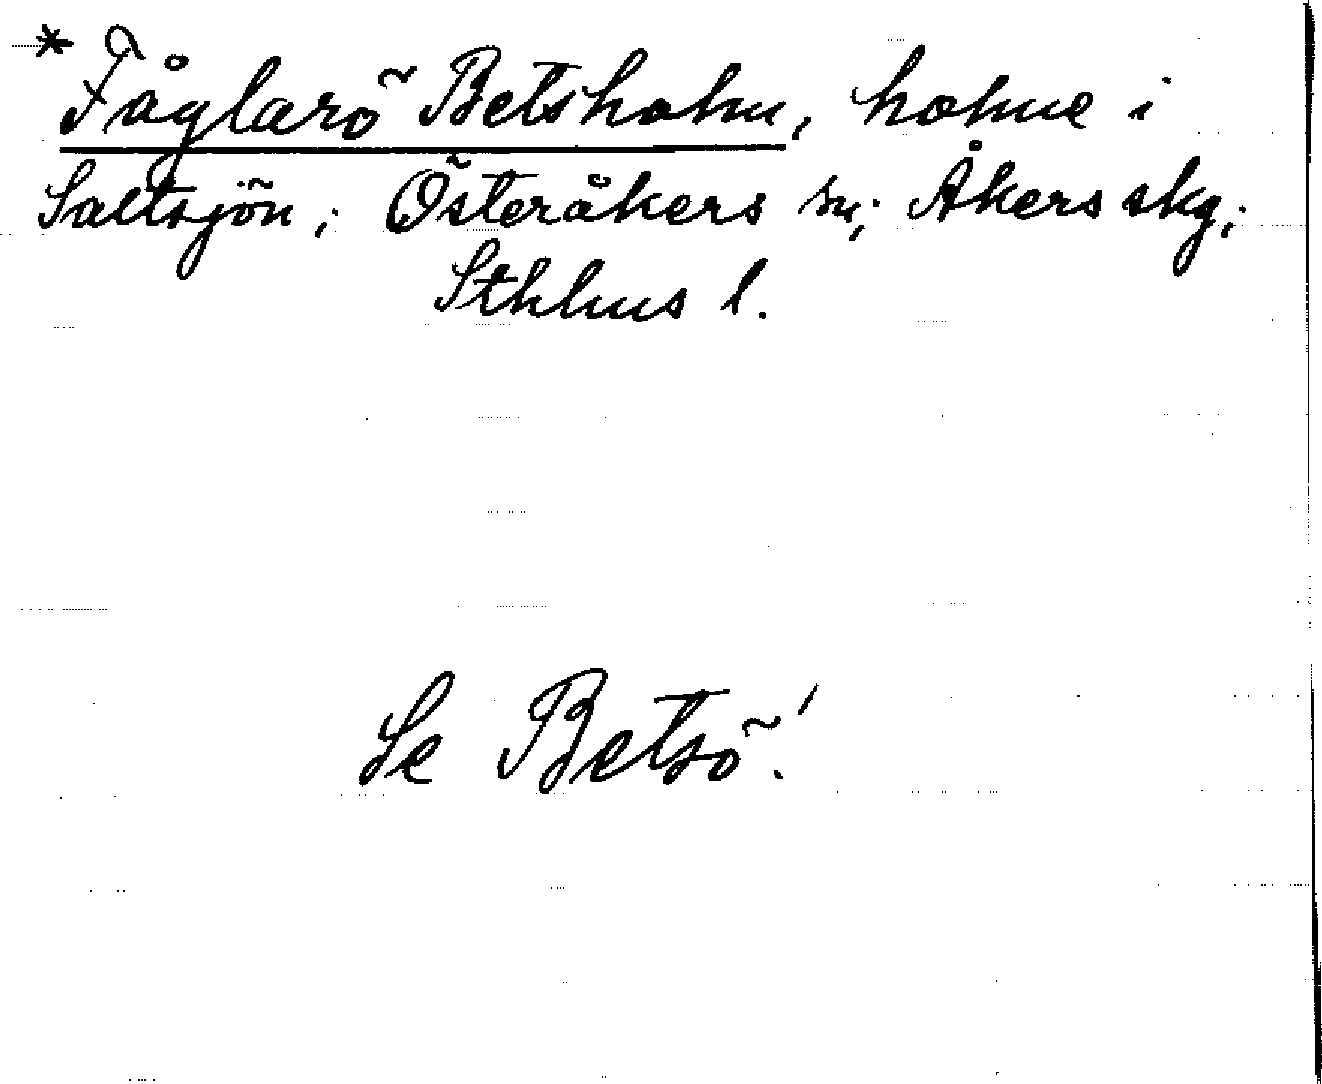 * Fåglarö Betsholm, holme i
Saltsjön, Österåkers sn, Åkers skg,
Sthlms l.
Se Betsö!